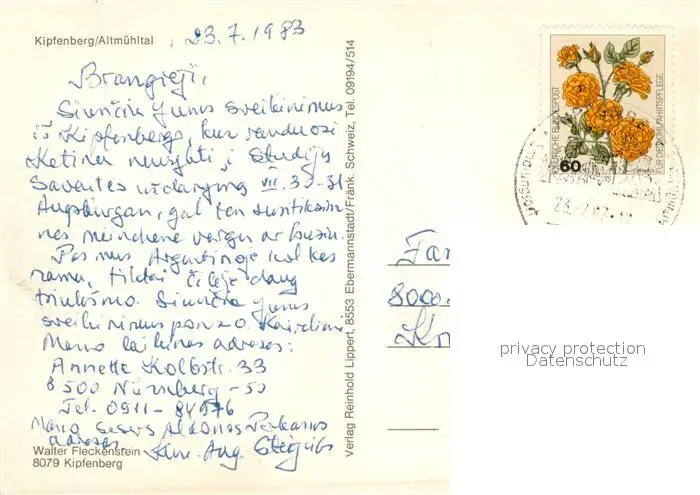 Kipfenberg/Altmühltal
23.7.1983
Brangieji,
Siunčiu Jums sveikinimus
iš Kipfenbergo, kur randuosi
Ketinu nuvykti į Studijų
Savaitės uždarymą VII. 30-31
Augsburgan, gal ten susitiksim
nes Miunchene vargu ar busiu.
Pas mus Argentinoje kol kas
ramu, tiktai Čilėje daug
triukšmo. Siunčiu Jums
sveikinimus
Mano laikinas adresas:
Annette Kolbstr. 33
8500 Nürnberg - 50
Tel. 0911 - 84976
Mano sesers Aldonos
adresas
Kun. Aug.
Walter Fleckenstein
8079 Kipfenberg
Verlag Reinhold Lippert, 8553 Ebermannstadt/Fränk. Schweiz, Tel. 09194/514
DEUTSCHE BUNDESPOST
FÜR DIE WOHLFAHRTSPFLEGE
60
Fam
8000
privacy protection
Datenschutz